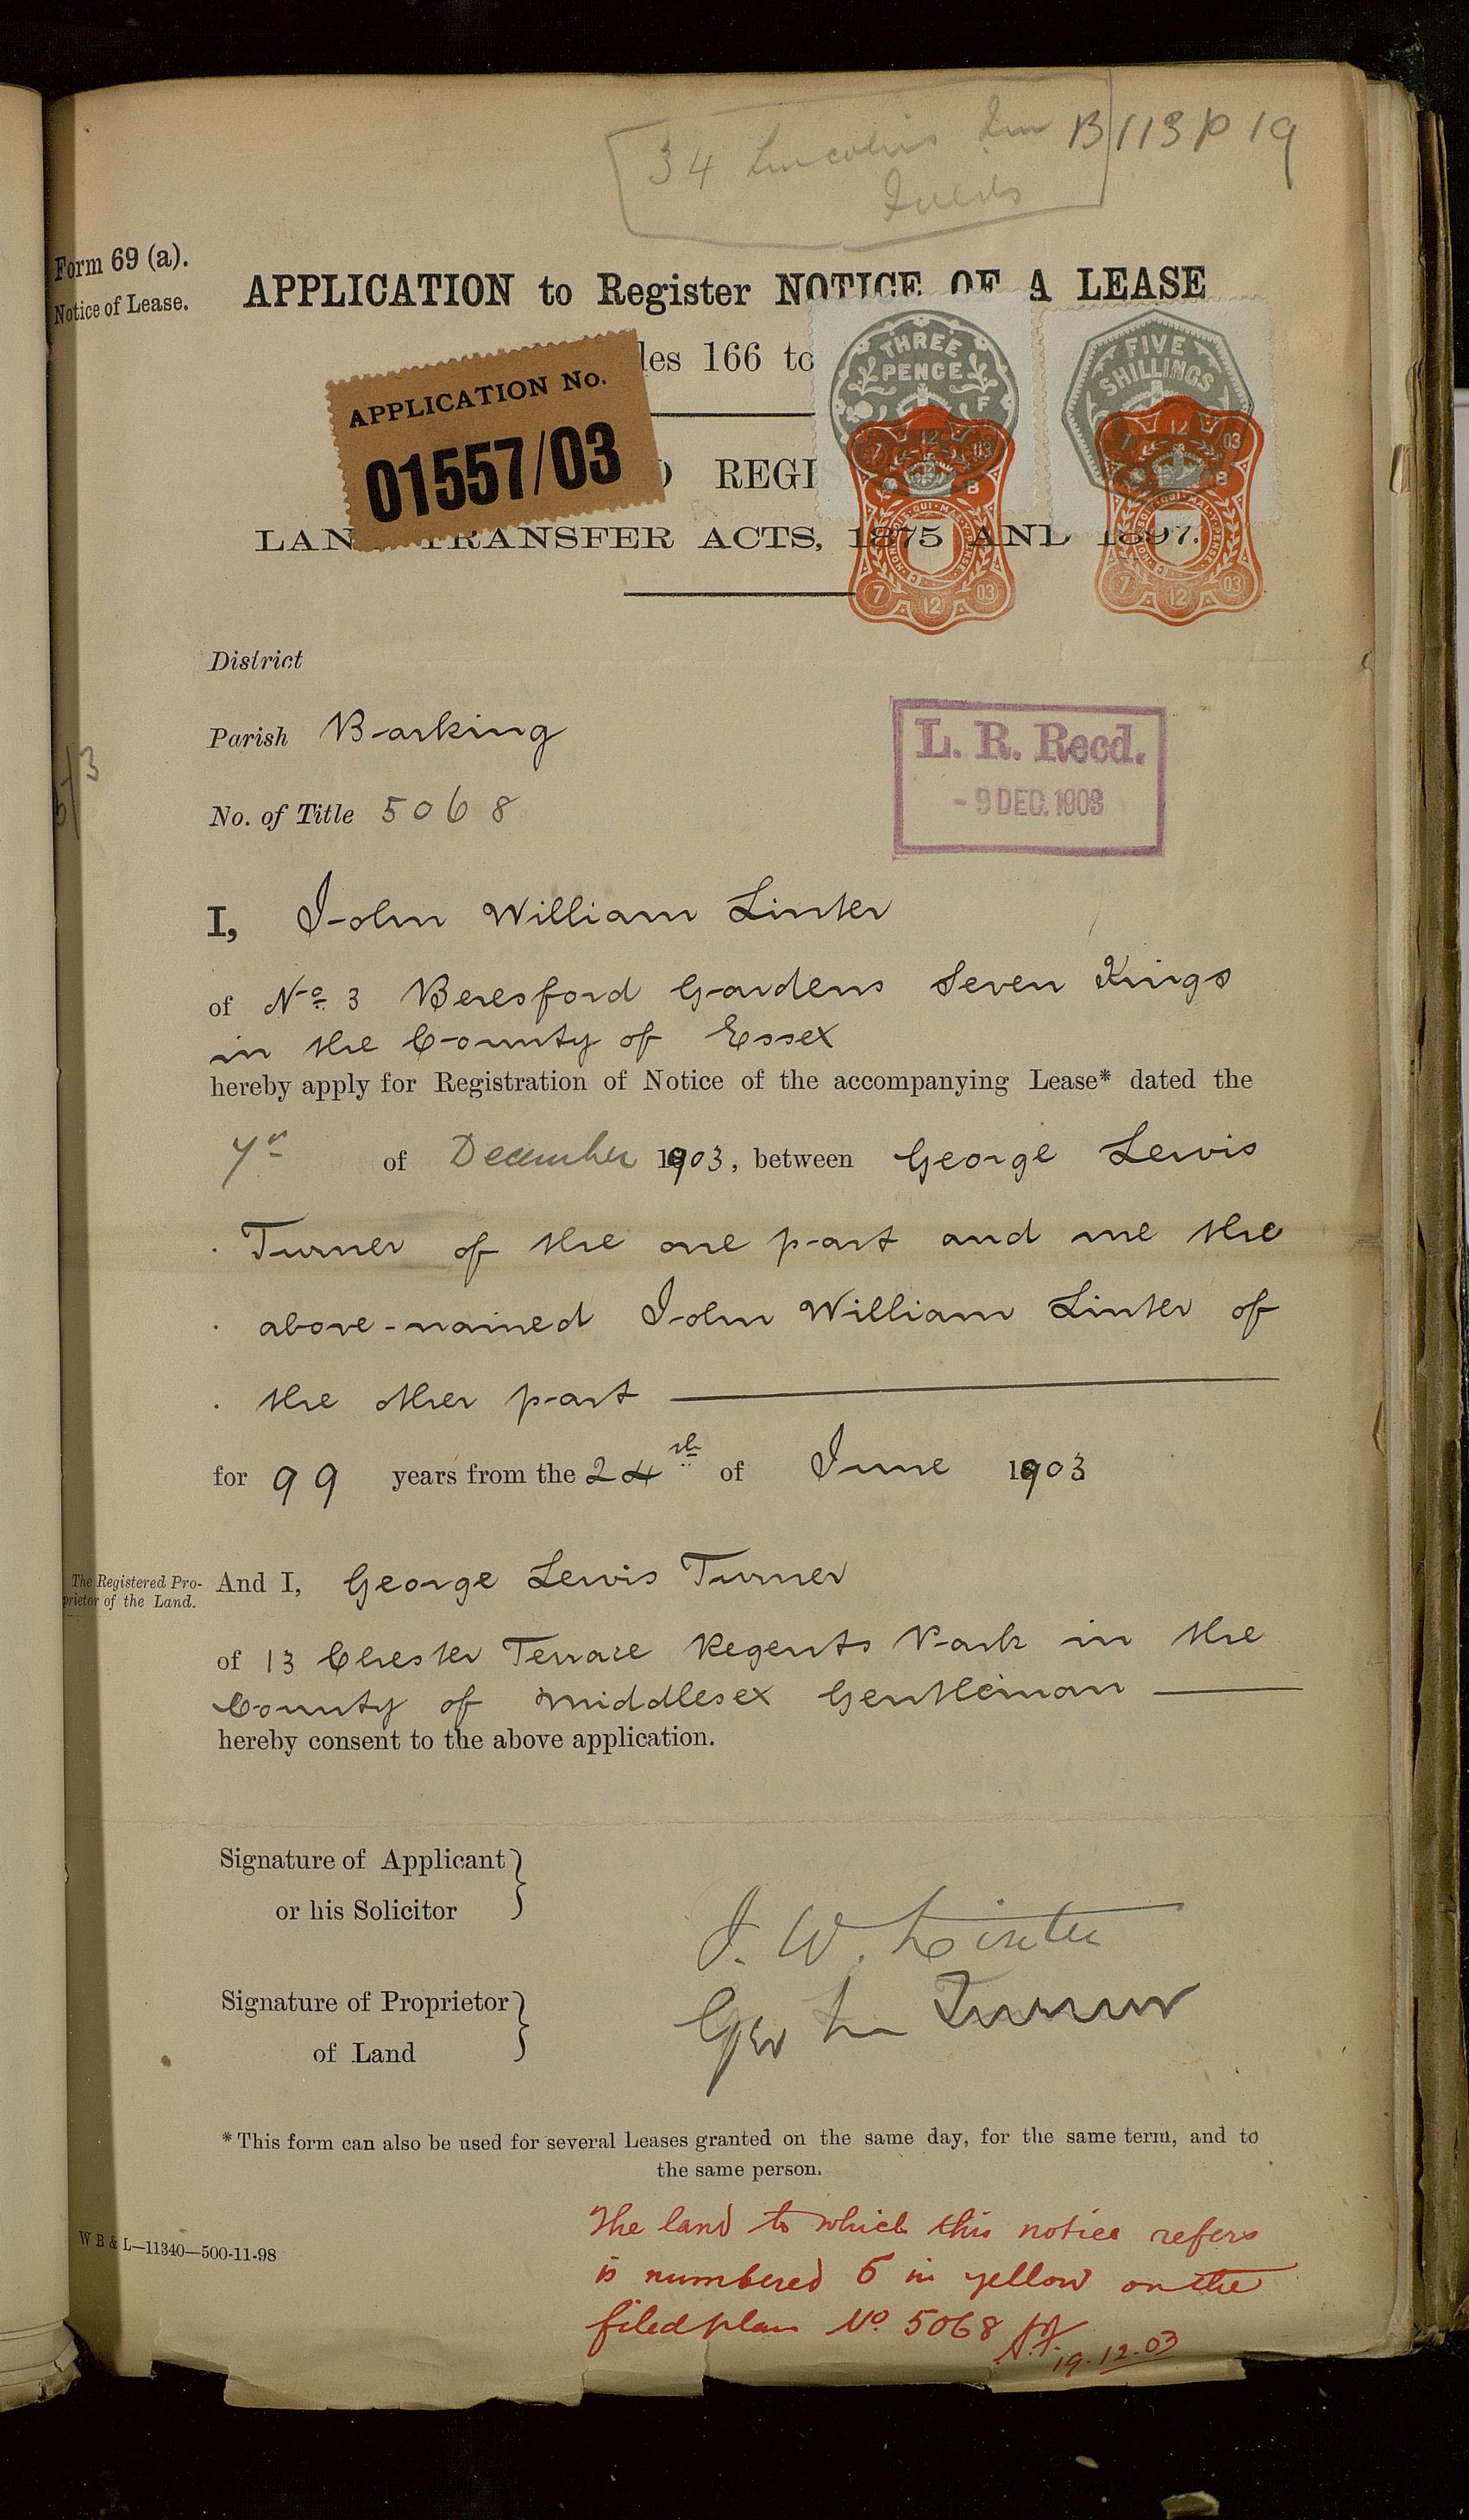 34 Lincolns Inn
Fields
B/113 p 19
Form 69 (a).
Notice of Lease.
APPLICATION to Register NOTICE OF A LEASE
les 166 to
APPLICATION No.
01557/03
THREE
PENCE
F
FIVE
SHILLINGS
7 12 03
B
7 12 03
7 12 03
B
7 12 03
REGI
LAND TRANSFER ACTS, 1875 AND 1897.
District
Parish Barking
No. of Title 5068
L. R. Recd.
- 9 DEC. 1903
I, John William Linter
of No. 3 Beresford Gardens Seven Kings
in the County of Essex
hereby apply for Registration of Notice of the accompanying Lease* dated the
7th of December 1903, between George Lewis
Turner of the one part and me the
above-named John William Linter of
the other part
for 99 years from the 24th of June 1903
The Registered Pro-
prietor of the Land.
And I, George Lewis Turner
of 13 Chester Terrace Regents Park in the
County of Middlesex Gentleman
hereby consent to the above application.
Signature of Applicant
or his Solicitor
J. W. Linter
Signature of Proprietor
of Land
Geo L Turner
* This form can also be used for several Leases granted on the same day, for the same term, and to
the same person.
W B & L—11340—500-11-98
The land to which this notice refers
is numbered 5 in yellow on the
filed plan No 5068
19.12.03